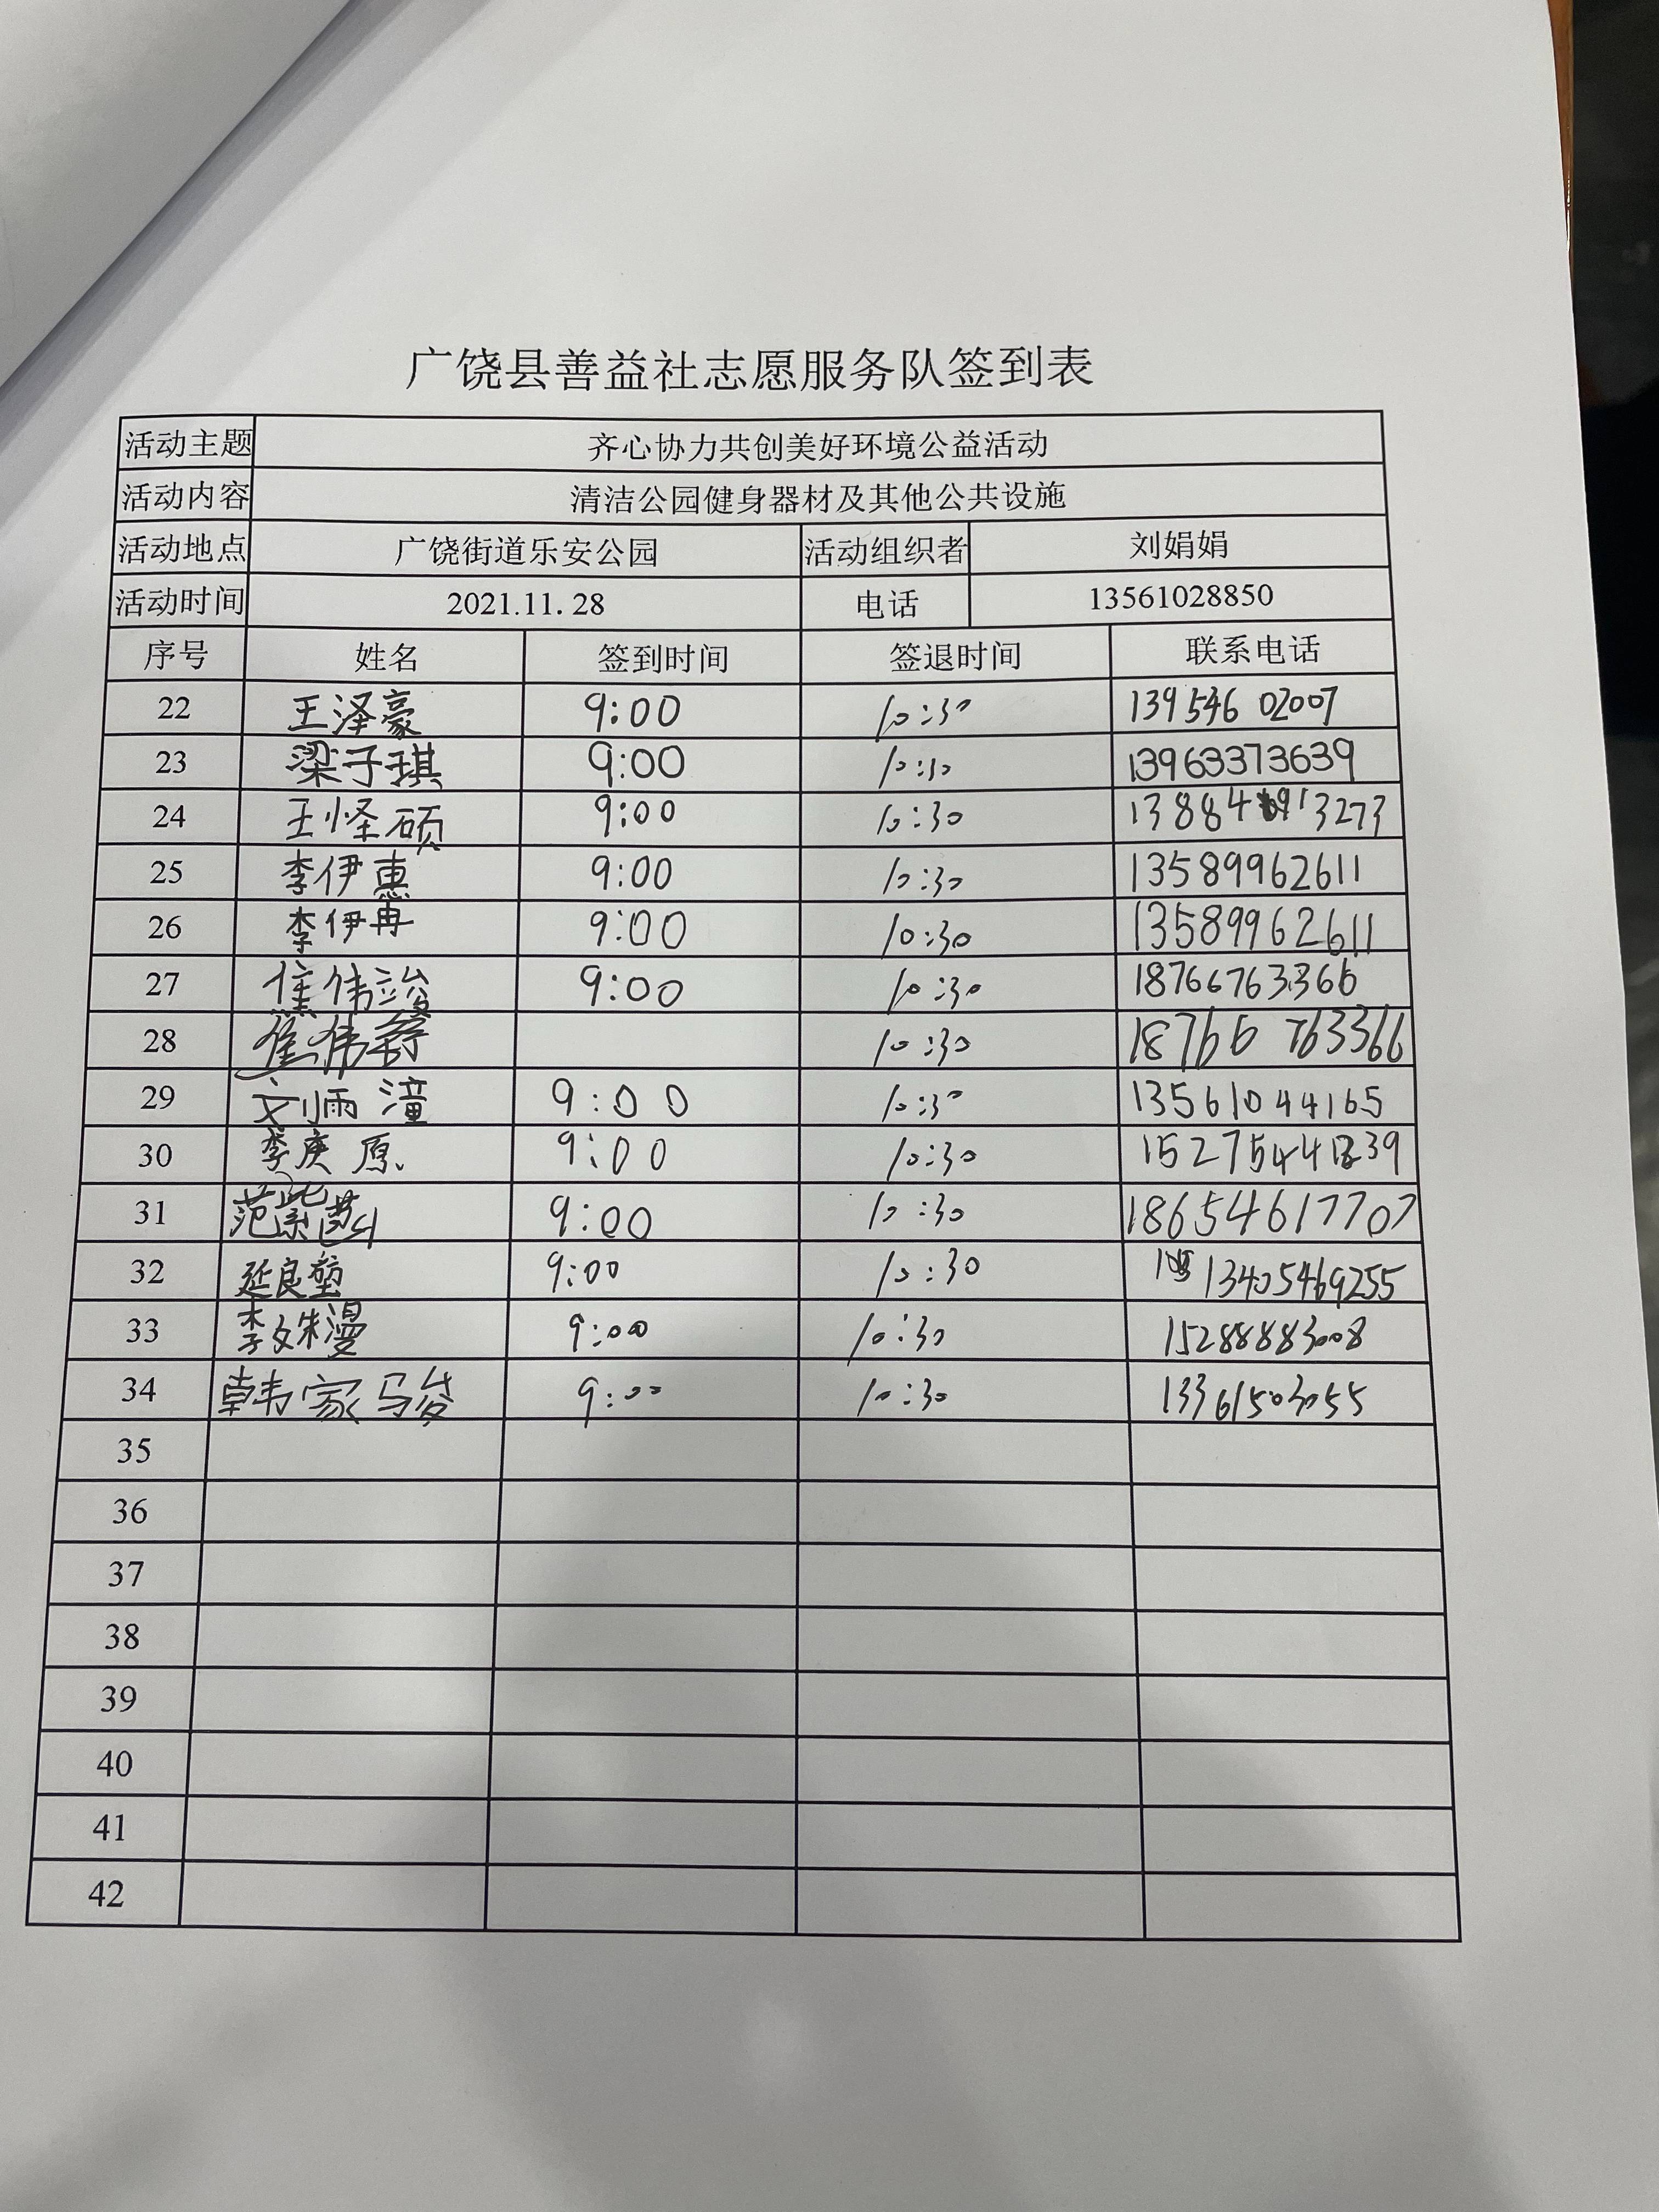 广饶县善益社志愿服务队签到表
活动主题 齐心协力共创美好环境公益活动
活动内容 清洁公园健身器材及其他公共设施
活动地点 广饶街道乐安公园 活动组织者 刘娟娟
活动时间 2021.11.28 电话 13561028850
序号 姓名 签到时间 签退时间 联系电话
22 王泽豪 9:00 10:30 13954602007
23 梁子琪 9:00 10:30 13963373639
24 王怪硕 9:00 10:30
25 李伊惠 9:00 10:30 13589962611
26 李伊冉 9:00 10:30 13589962611
27 焦伟竣 9:00 10:30 18766763366
28 焦伟舒 10:30 18766763366
29 刘雨潼 9:00 10:30 13561044165
30 李庚原 9:00 10:30
31 范紫 9:00 10:30 18654617707
32 延良堃 9:00 10:30 13405469255
33 李姝漫 9:00 10:30 15288883008
34 韩家骏 9:00 10:30 13361503055
35
36
37
38
39
40
41
42